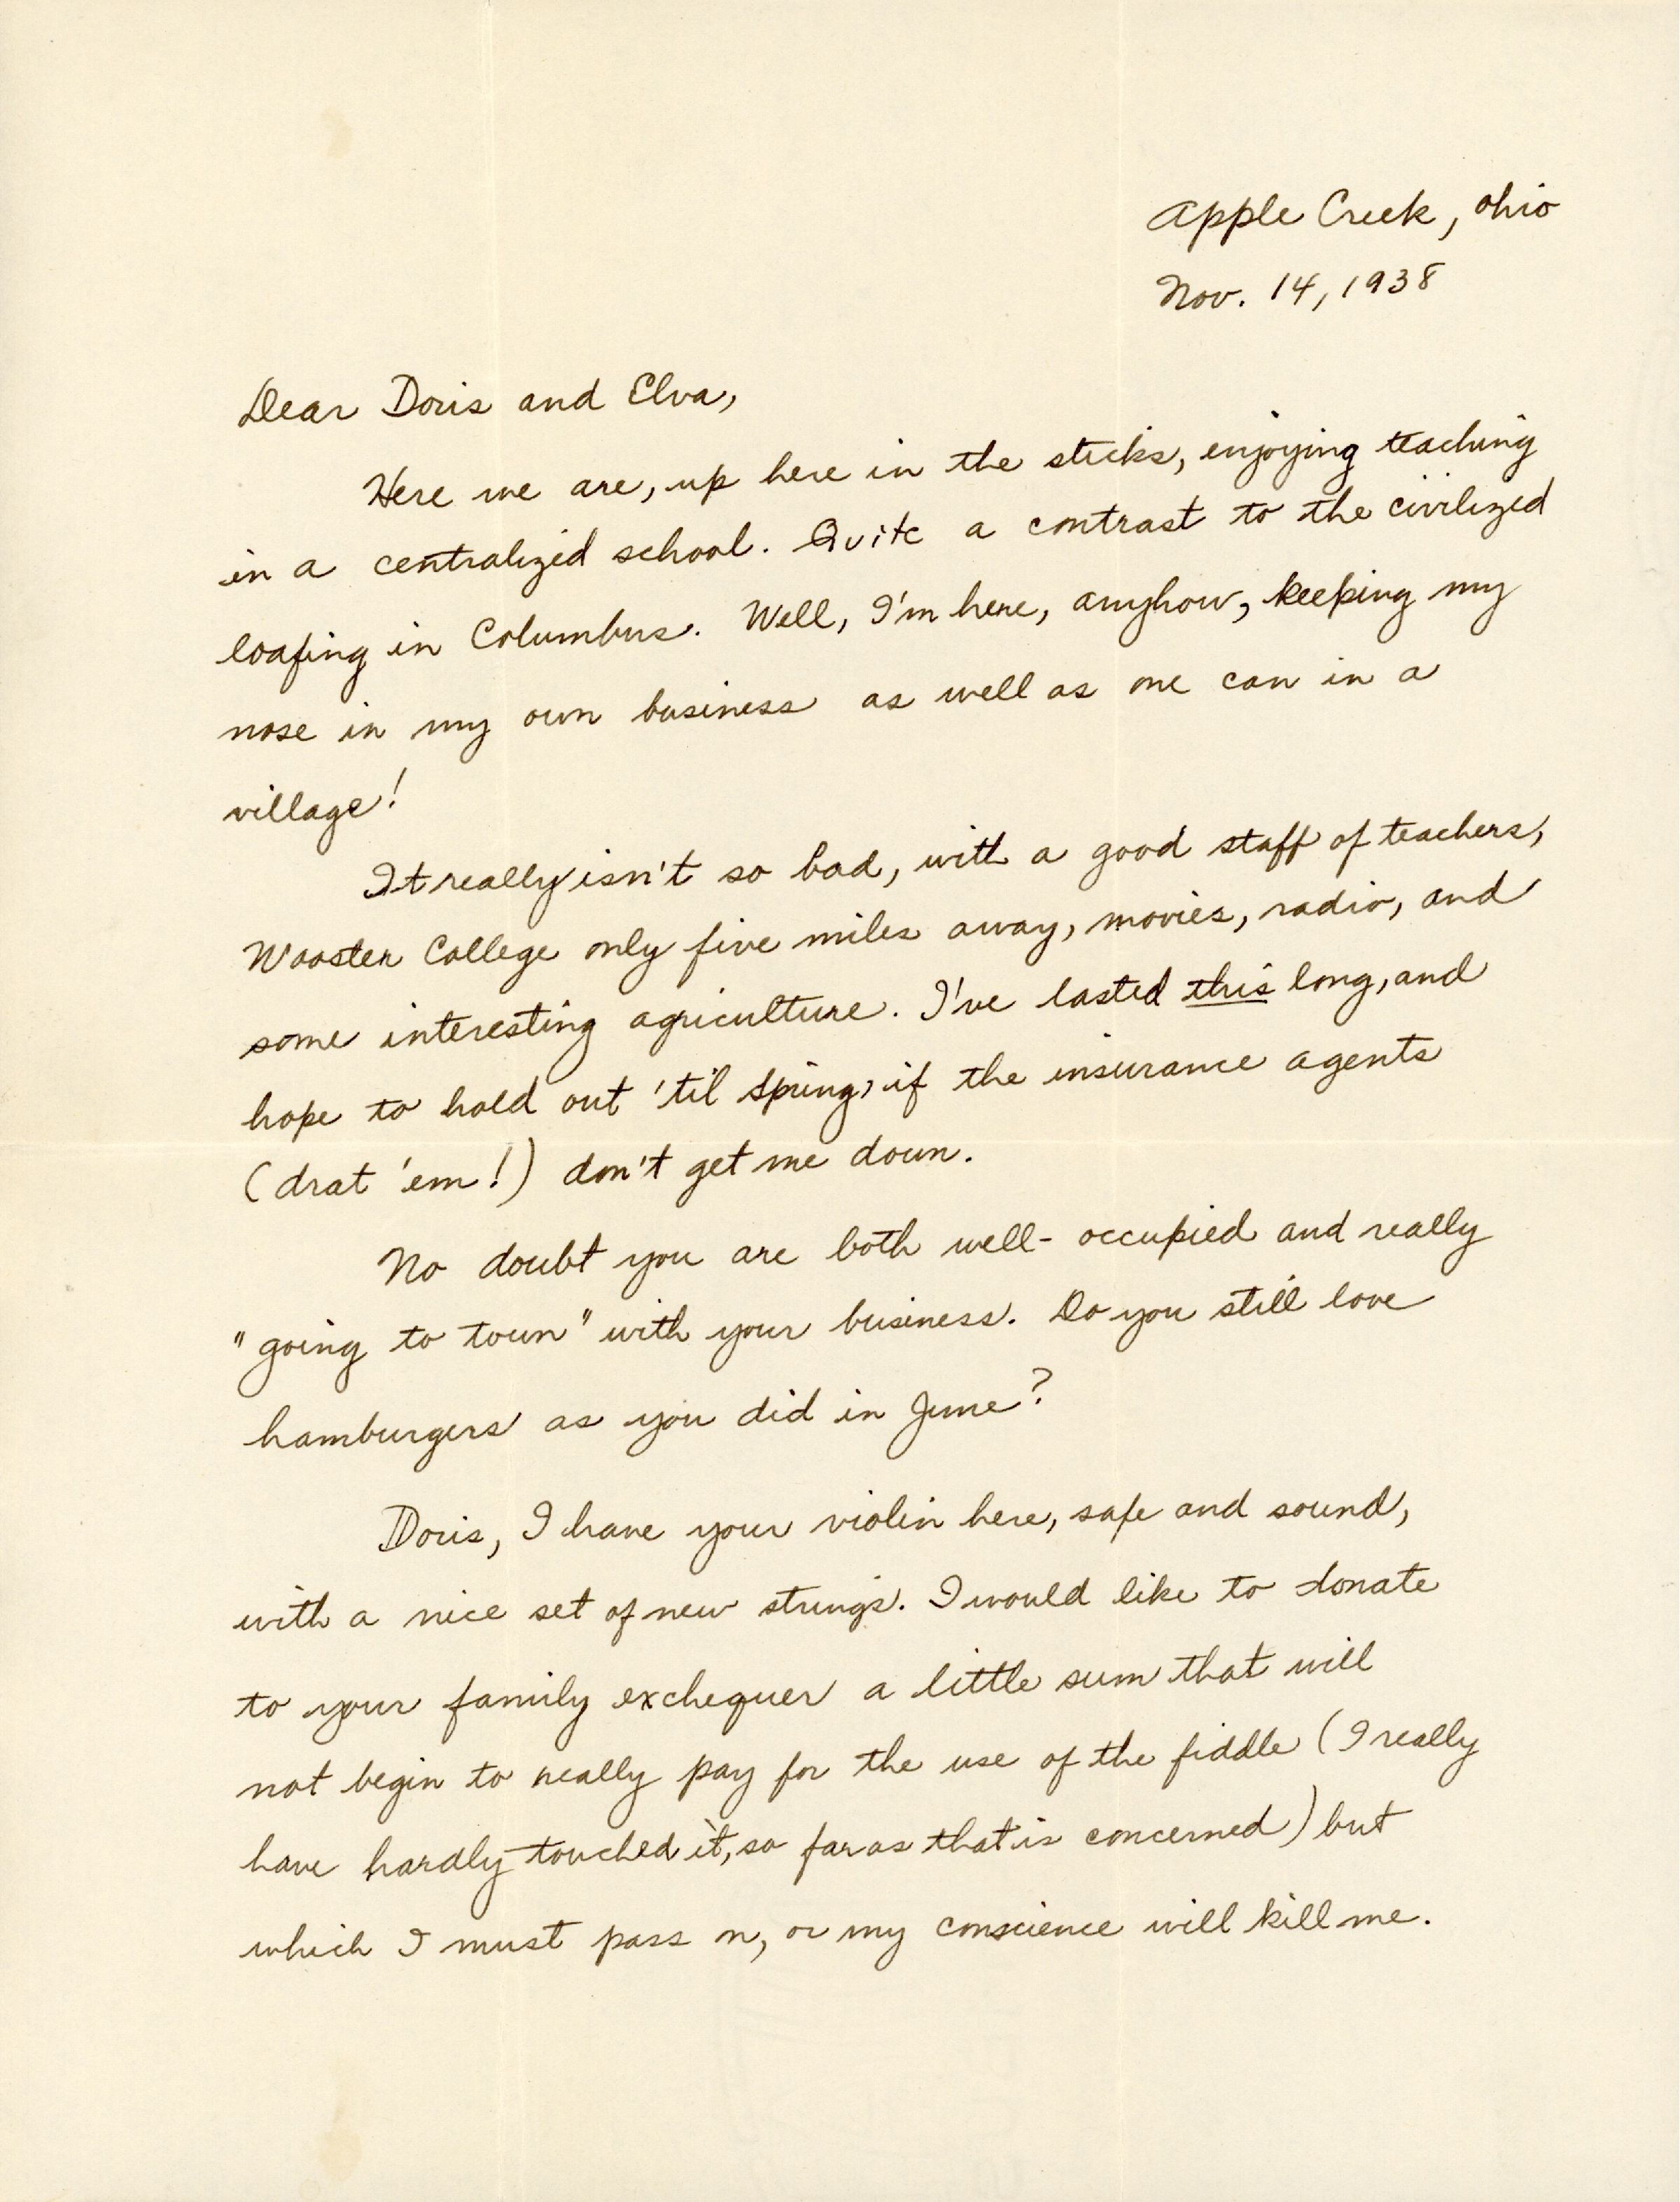 Apple Creek, Ohio
Nov. 14, 1938
Dear Doris and Elva,
Here we are, up here in the sticks, enjoying teaching
in a centralized school. Quite a contrast to the civilized
loafing in Columbus. Well, I'm here, anyhow, keeping my
nose in my own business as well as one can in a
village!
It really isn't so bad, with a good staff of teachers,
Wooster College only five miles away, movies, radio, and
some interesting agriculture. I've lasted this long, and
hope to hold out 'til spring, if the insurance agents
(drat 'em!) don't get me down.
No doubt you are both well-occupied and really
"going to town" with your business. Do you still love
hamburgers as you did in June?
Doris, I have your violin here, safe and sound,
with a nice set of new strings. I would like to donate
to your family exchequer a little sum that will
not begin to really pay for the use of the fiddle (I really
have hardly touched it, so far as that is concerned) but
which I must pass on, or my conscience will kill me.